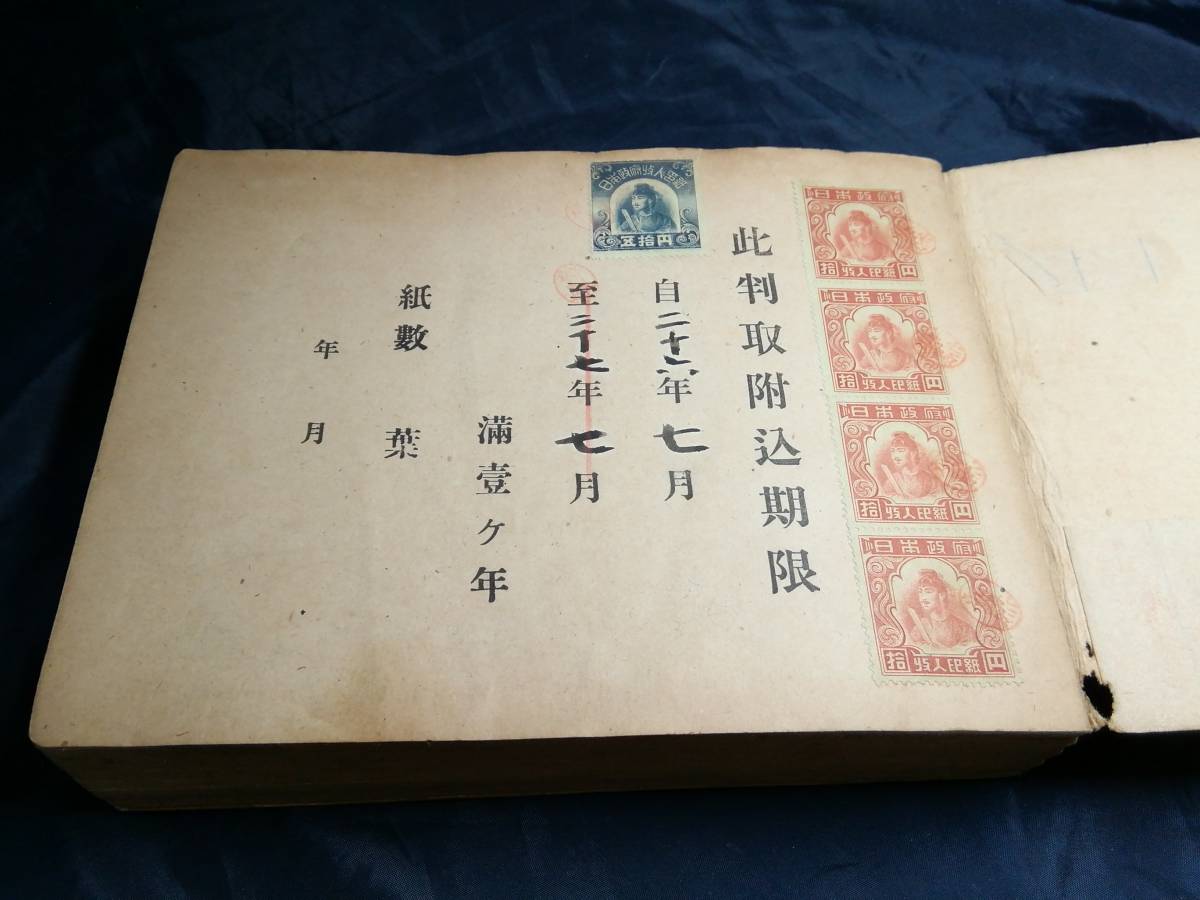 此判取附込期限
自二十六年七月
至二十七年七月
満壹ケ年
紙數 葉
年 月
日本政府收入印紙
五拾円
日本政府
拾 收入印紙 円
日本政府
拾 收入印紙 円
日本政府
拾 收入印紙 円
日本政府
拾 收入印紙 円